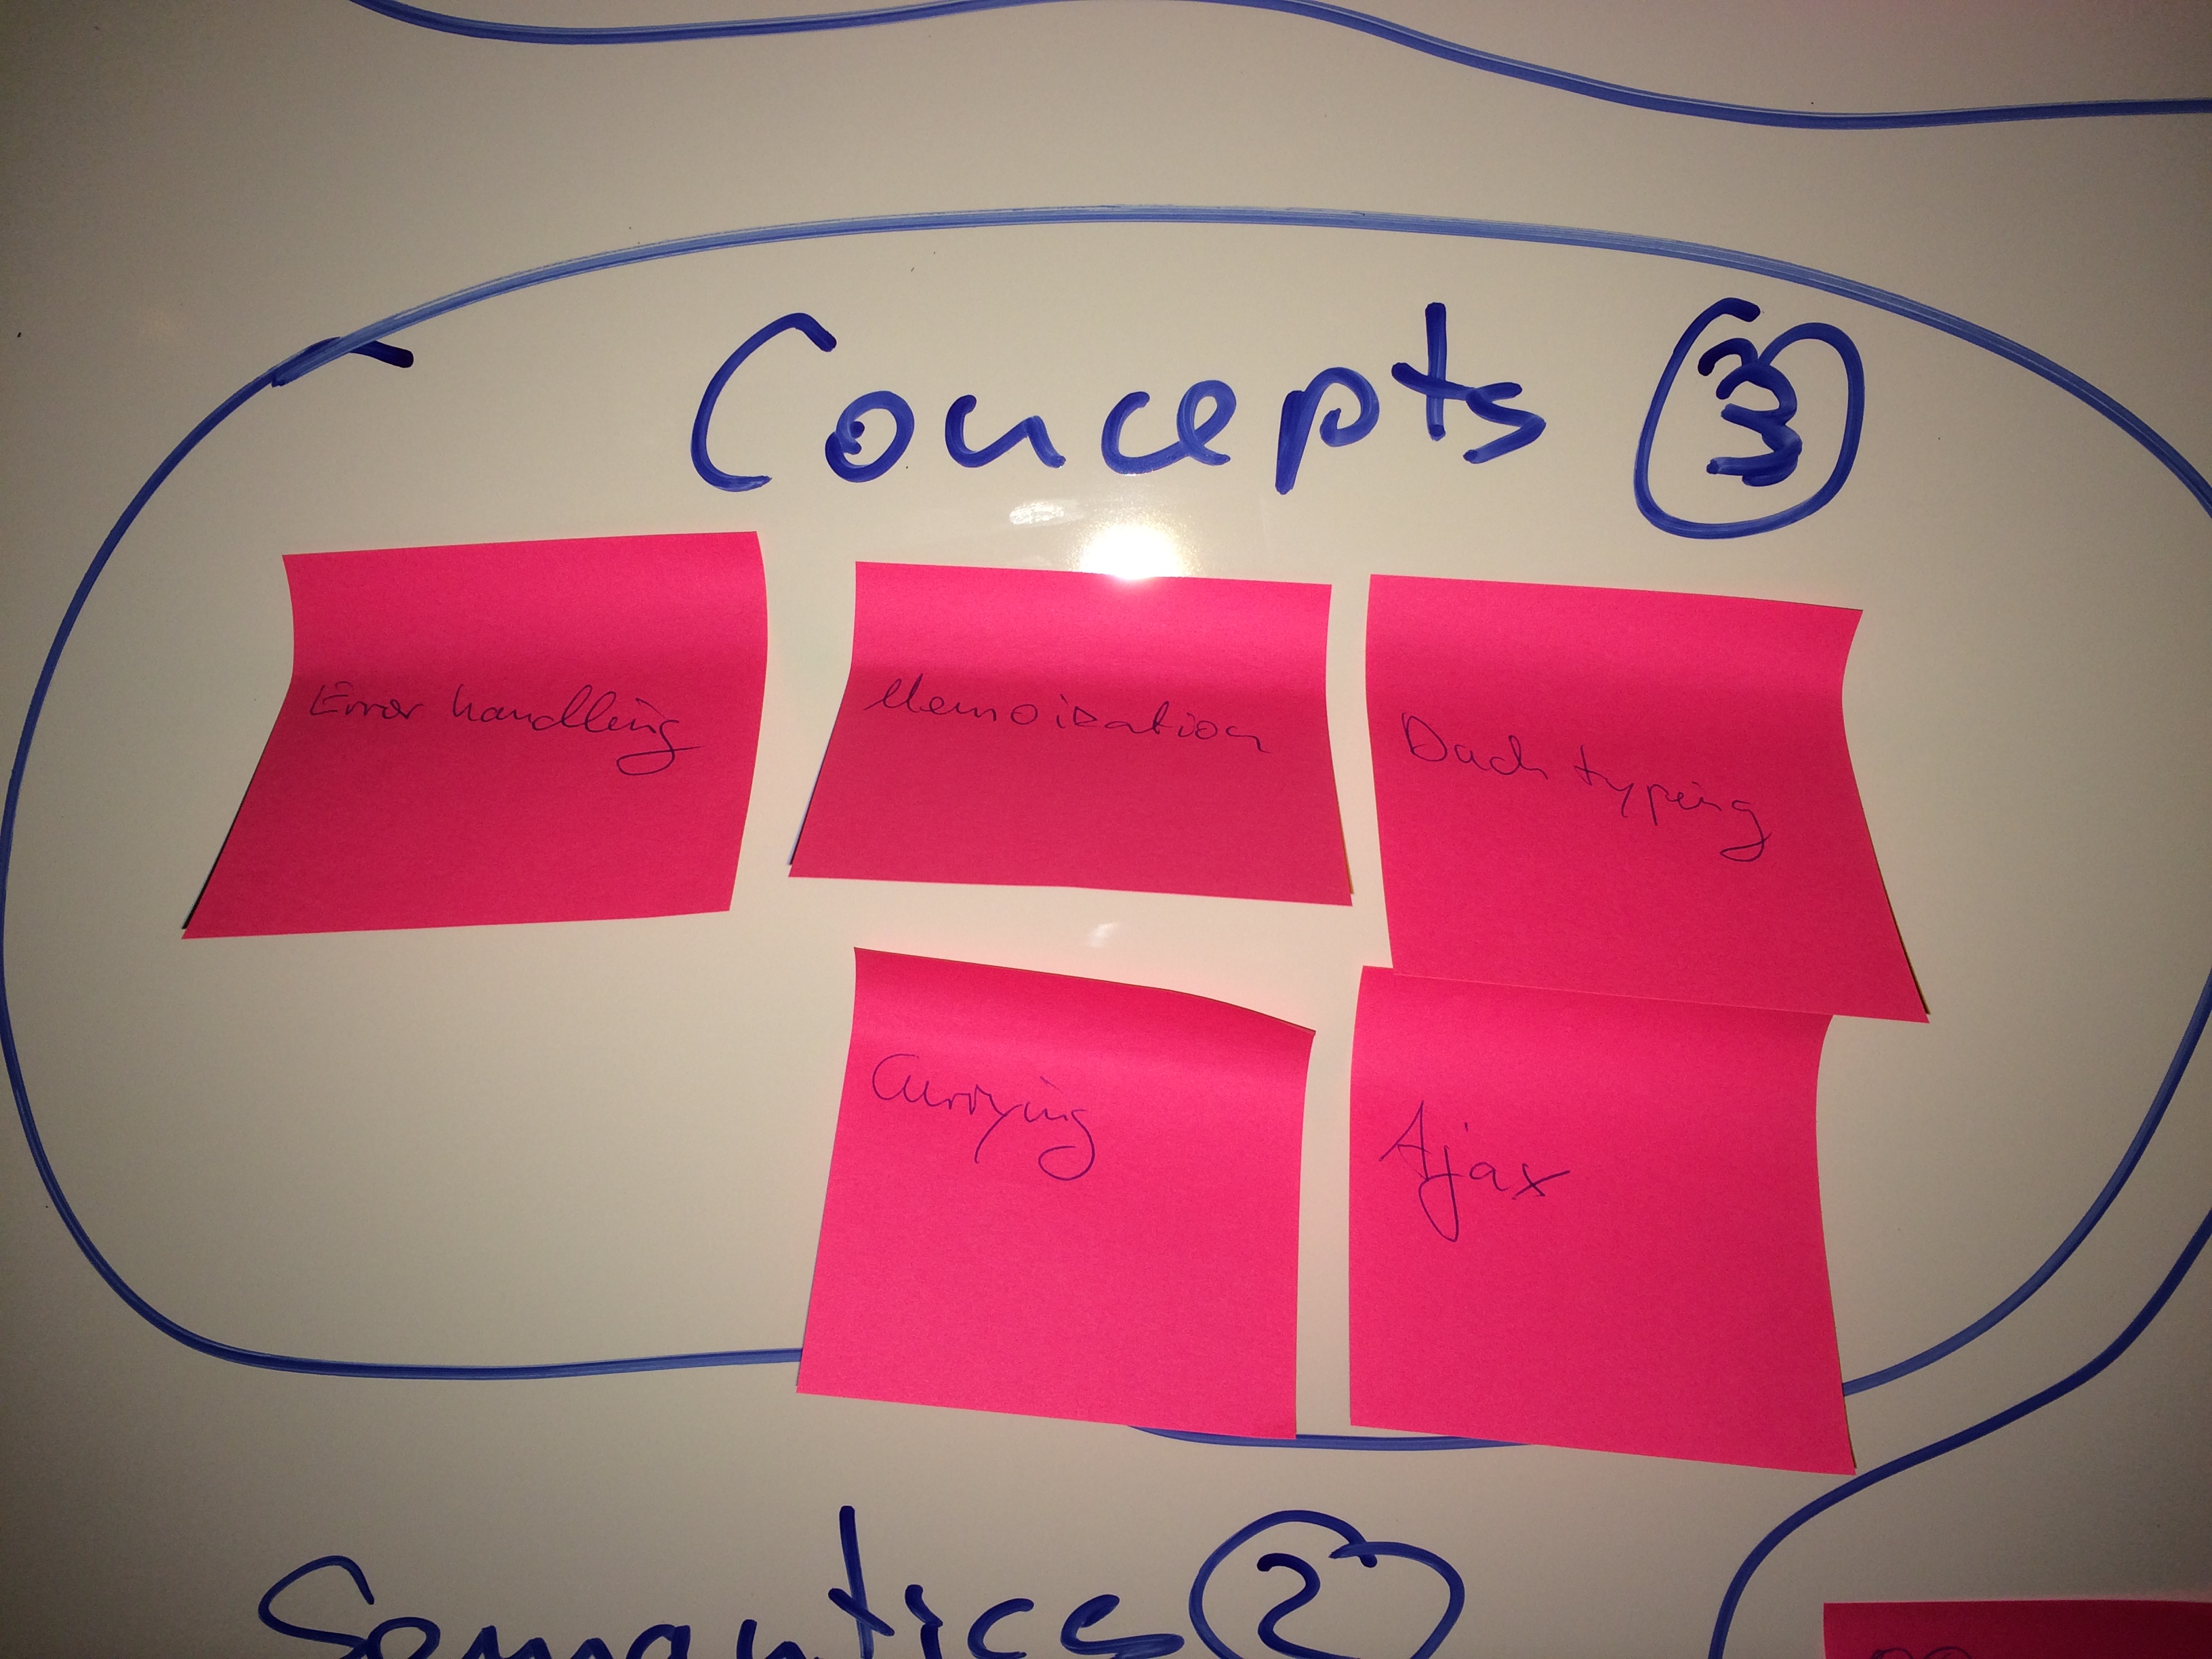 Concepts 3
Error handling
Memoization
Duck typing
Currying
Ajax
Semantics 2